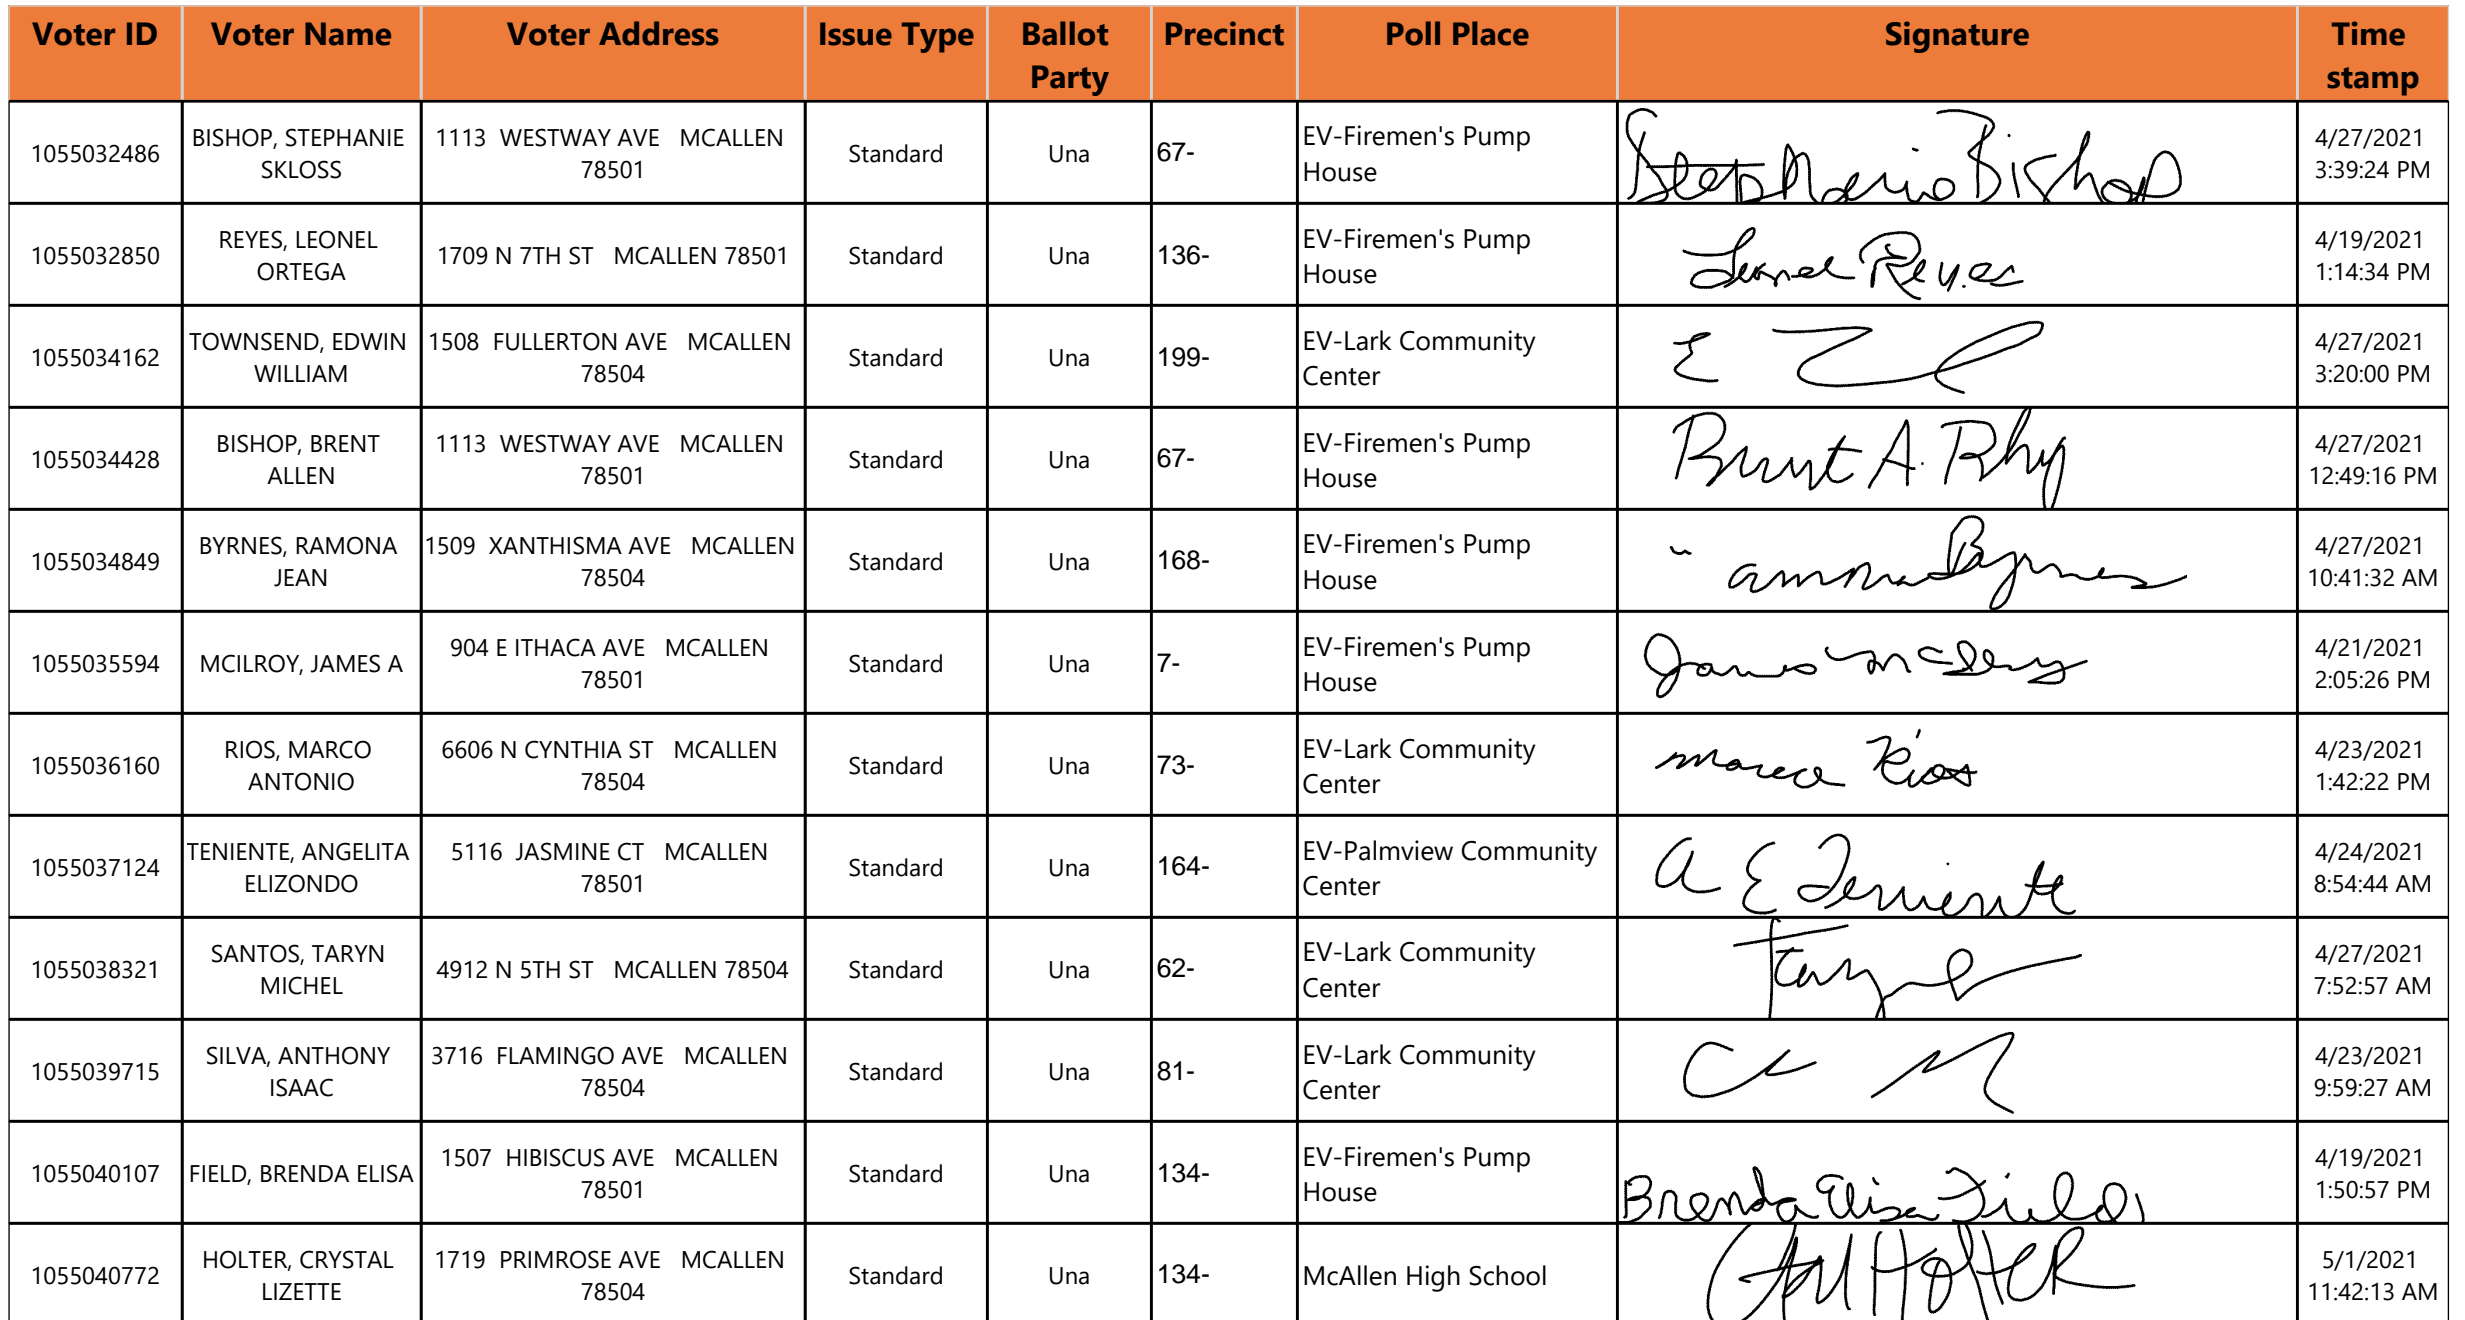 Voter ID Voter Name Voter Address Issue Type Ballot Party Precinct Poll Place Signature Time stamp
1055032486 BISHOP, STEPHANIE SKLOSS 1113 WESTWAY AVE MCALLEN 78501 Standard Una 67- EV-Firemen's Pump House Stephanie Bishop 4/27/2021 3:39:24 PM
1055032850 REYES, LEONEL ORTEGA 1709 N 7TH ST MCALLEN 78501 Standard Una 136- EV-Firemen's Pump House Leonel Reyes 4/19/2021 1:14:34 PM
1055034162 TOWNSEND, EDWIN WILLIAM 1508 FULLERTON AVE MCALLEN 78504 Standard Una 199- EV-Lark Community Center E 4/27/2021 3:20:00 PM
1055034428 BISHOP, BRENT ALLEN 1113 WESTWAY AVE MCALLEN 78501 Standard Una 67- EV-Firemen's Pump House Brent A. 4/27/2021 12:49:16 PM
1055034849 BYRNES, RAMONA JEAN 1509 XANTHISMA AVE MCALLEN 78504 Standard Una 168- EV-Firemen's Pump House Byrnes 4/27/2021 10:41:32 AM
1055035594 MCILROY, JAMES A 904 E ITHACA AVE MCALLEN 78501 Standard Una 7- EV-Firemen's Pump House James McIlroy 4/21/2021 2:05:26 PM
1055036160 RIOS, MARCO ANTONIO 6606 N CYNTHIA ST MCALLEN 78504 Standard Una 73- EV-Lark Community Center Marco Rios 4/23/2021 1:42:22 PM
1055037124 TENIENTE, ANGELITA ELIZONDO 5116 JASMINE CT MCALLEN 78501 Standard Una 164- EV-Palmview Community Center A E Teniente 4/24/2021 8:54:44 AM
1055038321 SANTOS, TARYN MICHEL 4912 N 5TH ST MCALLEN 78504 Standard Una 62- EV-Lark Community Center Taryn 4/27/2021 7:52:57 AM
1055039715 SILVA, ANTHONY ISAAC 3716 FLAMINGO AVE MCALLEN 78504 Standard Una 81- EV-Lark Community Center 4/23/2021 9:59:27 AM
1055040107 FIELD, BRENDA ELISA 1507 HIBISCUS AVE MCALLEN 78501 Standard Una 134- EV-Firemen's Pump House Brenda Elisa Field 4/19/2021 1:50:57 PM
1055040772 HOLTER, CRYSTAL LIZETTE 1719 PRIMROSE AVE MCALLEN 78504 Standard Una 134- McAllen High School Holter 5/1/2021 11:42:13 AM